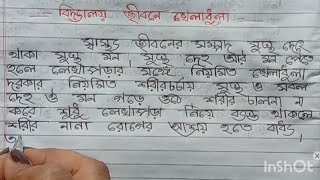 বিদ্যালয় জীবনে খেলাধুলা
স্বাস্থ্যই জীবনের সম্পদ সুস্থ দেহে
থাকা সুস্থ মন, সুস্থ দেহ আর মন পেতে
হলে লেখাপড়ার সঙ্গে নিয়মিত খেলাধুলা
দরকার নিয়মিত শরীরচর্চায় সুস্থ ও সবল
দেহ ও মন গড়ে ওঠে শরীর চালনা না
করে শুধু লেখাপড়া নিয়ে ব্যস্ত থাকলে
শরীর নানা রোগের আশ্রয় হতে বাধ্য
InShot